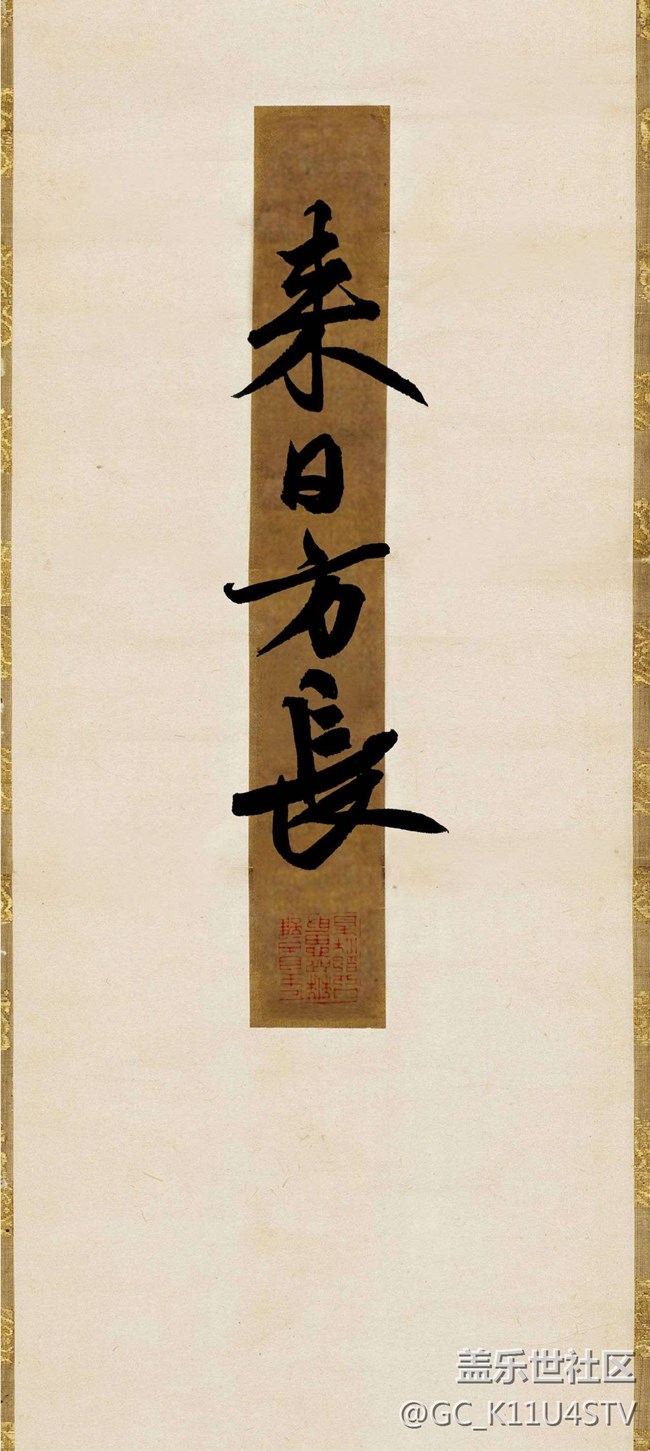 来日方長
盖乐世社区
@GC_K11U4STV